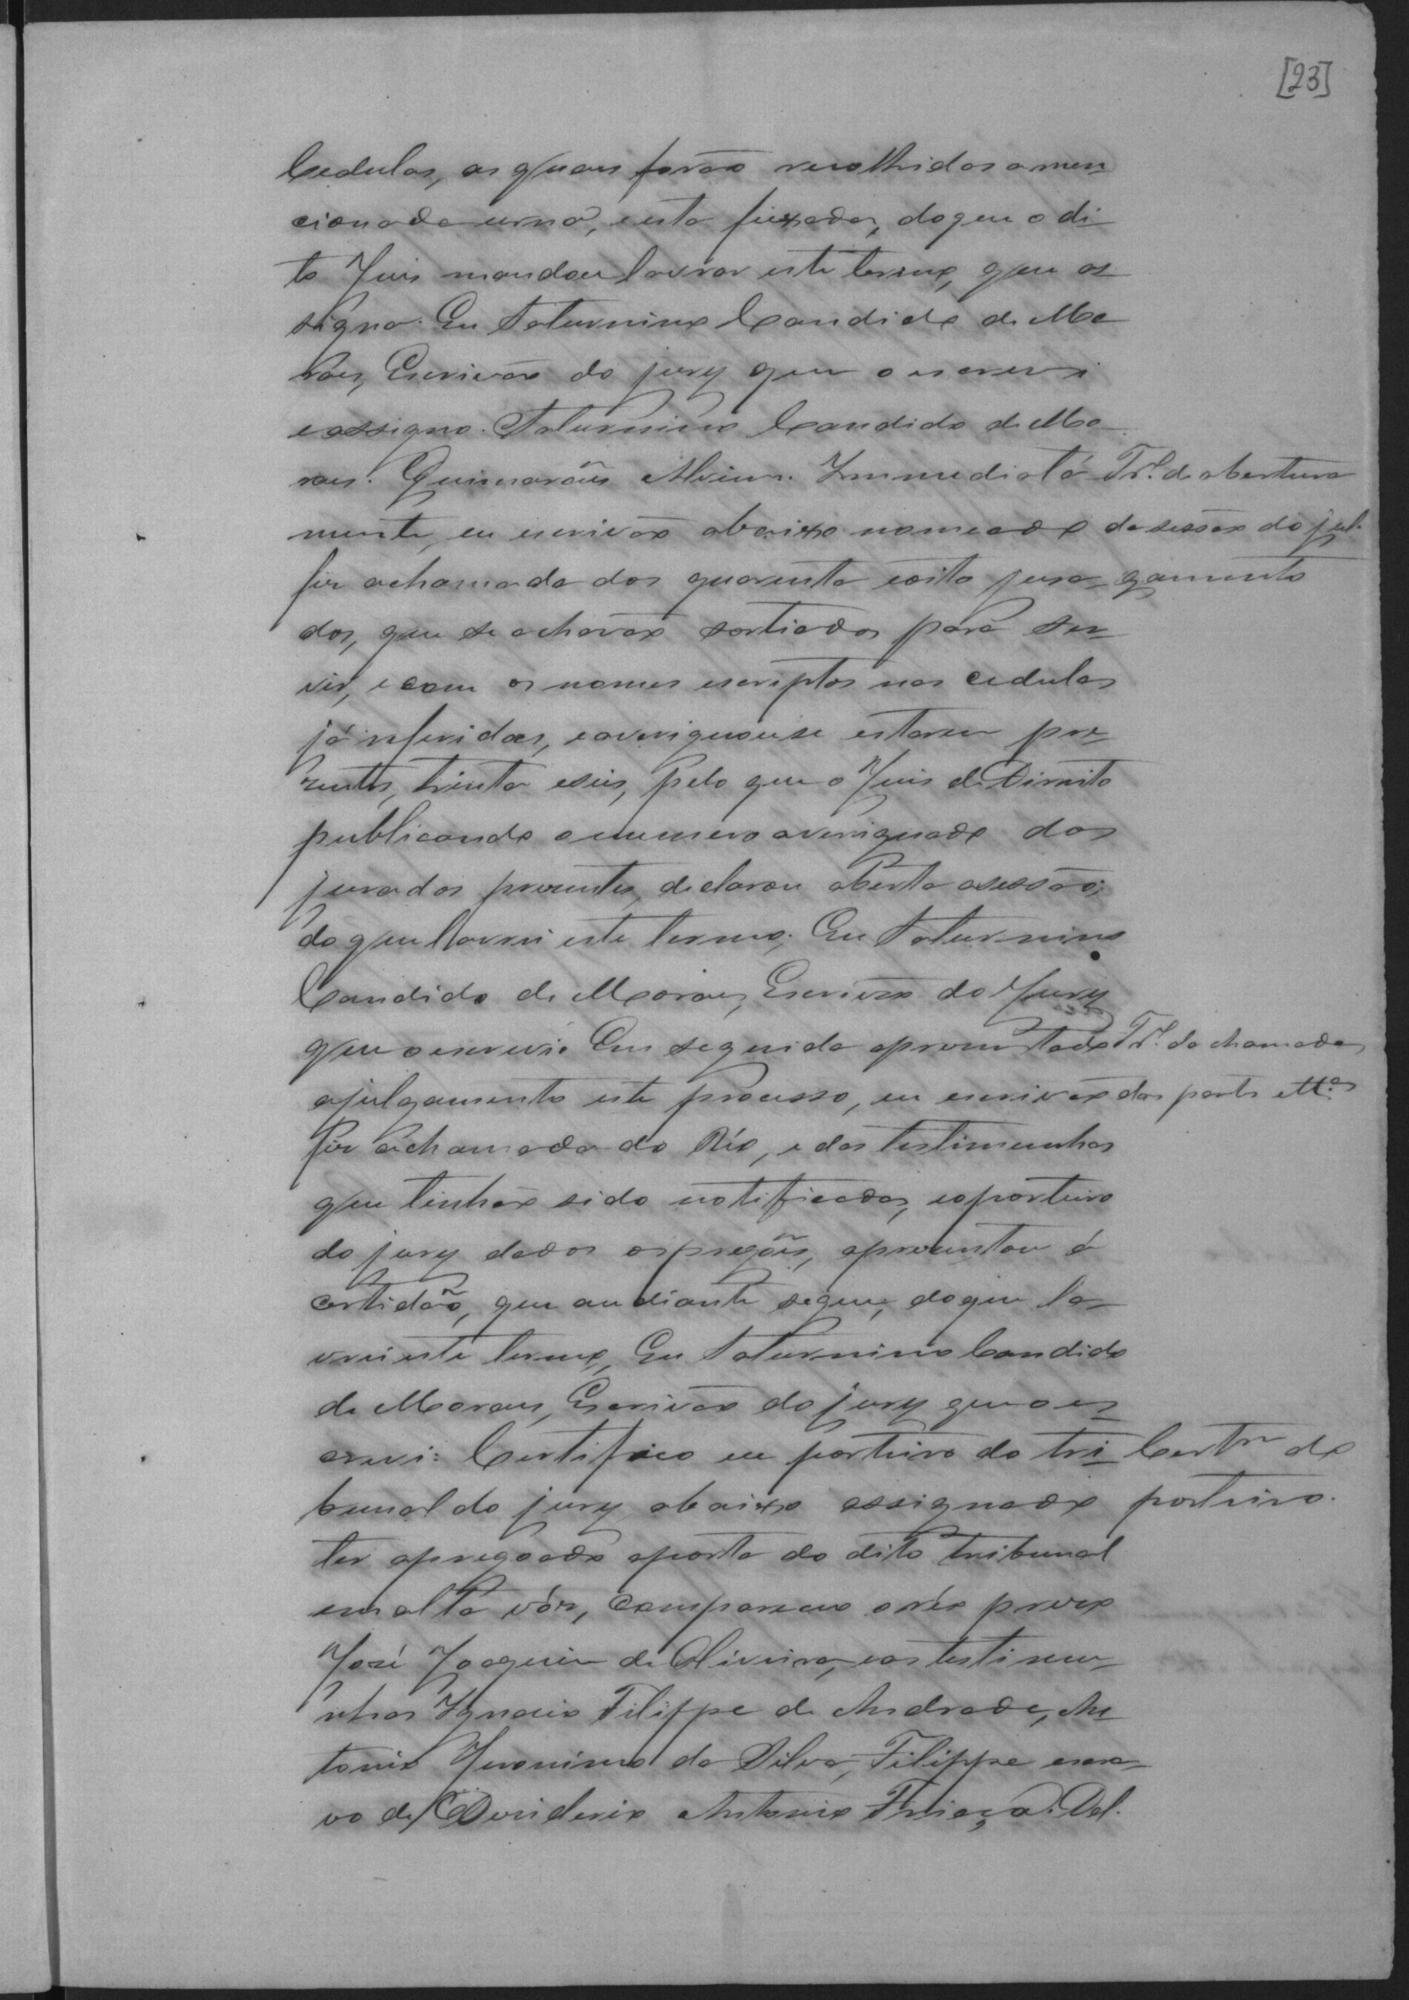 [23]
Cedulas, as quaes forão recolhidas a men
cionada urna, e esta fuxada, do que o di
to Juis mandou lavrar este termo, que as
signa. Eu Saturnino Candido de Mo
raes, Escrivão do jury que o escrevi
e assigno. Saturnino Candido de Mo
raes. Guimarães Alvim. Immediata
Tr.º de abertura
mente, eu escrivão abaixo nomeado
da sessão do jul
fiz a chamada dos quarenta e oito jura
gamento
dos, que se achavão sortiados para ser
vir, e com os nomes escriptos nas cedulas
já referidas, e averiguou se estarem pre
zentes, trinta e seis, pelo que o Juis de Direito
publicando o numero averiguado dos
jurados prezentes, declarou aberta a sessão;
do que lavrei este termo; Eu Saturnino
Candido de Moraes, Escrivão do Jury
que o escrevi. Em seguida aprezentado
Tr.º da chamada
a julgamento este processo, eu escrivão
das parts e tt.as
fiz a chamada do Réo, e das testimunhas
que tinhão sido notificadas, e o porteiro
do jury dados os pregões, aprezentou á
certidão, que au diante segue, do que la
vrei este termo, Eu Saturnino Candido
de Moraes, Escrivão do jury que o es
crevi: Certifico eu porteiro do tri
Certm do
bunal do jury abaixo assignado
porteiro.
ter apregoado a porta do dito tribunal
em alta vóz, compareceu o réo prezo
José Joaquim de Oliveira, e as testimu
nhas Ignacio Filippe de Andrade, An
tonio Jeronimo da Silva, Filippe escra
vo de Deziderio Antonio Friaça. Del.